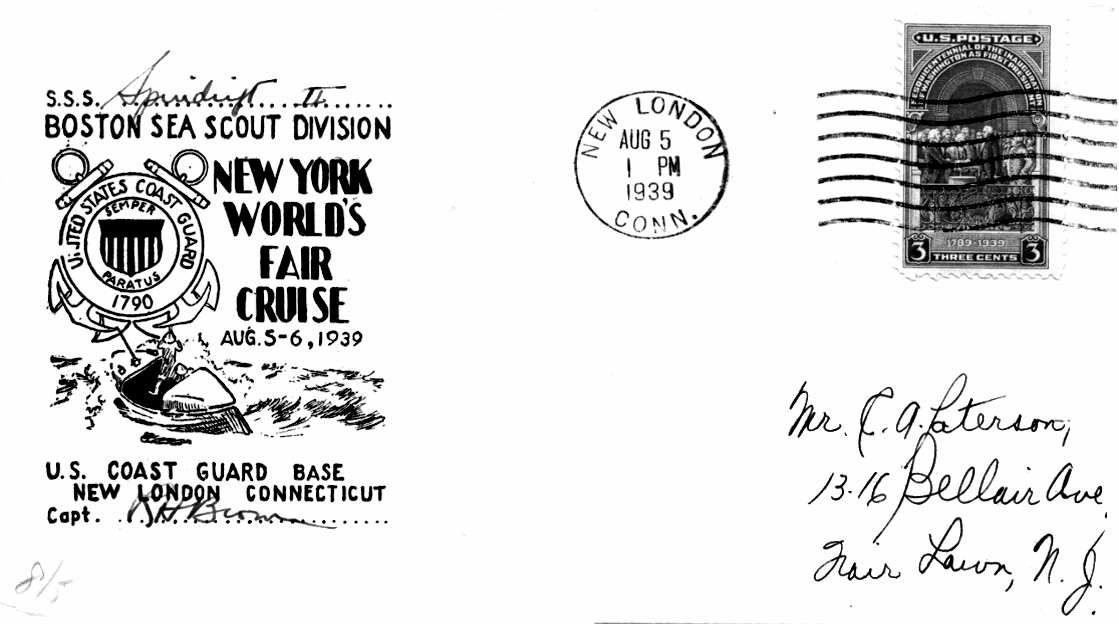 S.S.S. Spindrift II
BOSTON SEA SCOUT DIVISION
UNITED STATES COAST GUARD
SEMPER
PARATUS
1790
NEW YORK
WORLD'S
FAIR
CRUISE
AUG. 5-6, 1939
U.S. COAST GUARD BASE
NEW LONDON CONNECTICUT
Capt. R H Brown
8/5
NEW LONDON
AUG 5
1 PM
1939
CONN.
U.S. POSTAGE
SESQUICENTENNIAL OF THE INAUGURATION
OF WASHINGTON AS FIRST PRESIDENT
1789-1939
3 THREE CENTS 3
Mr. C. A. Paterson,
13-16 Bellair Ave.
Fair Lawn, N. J.